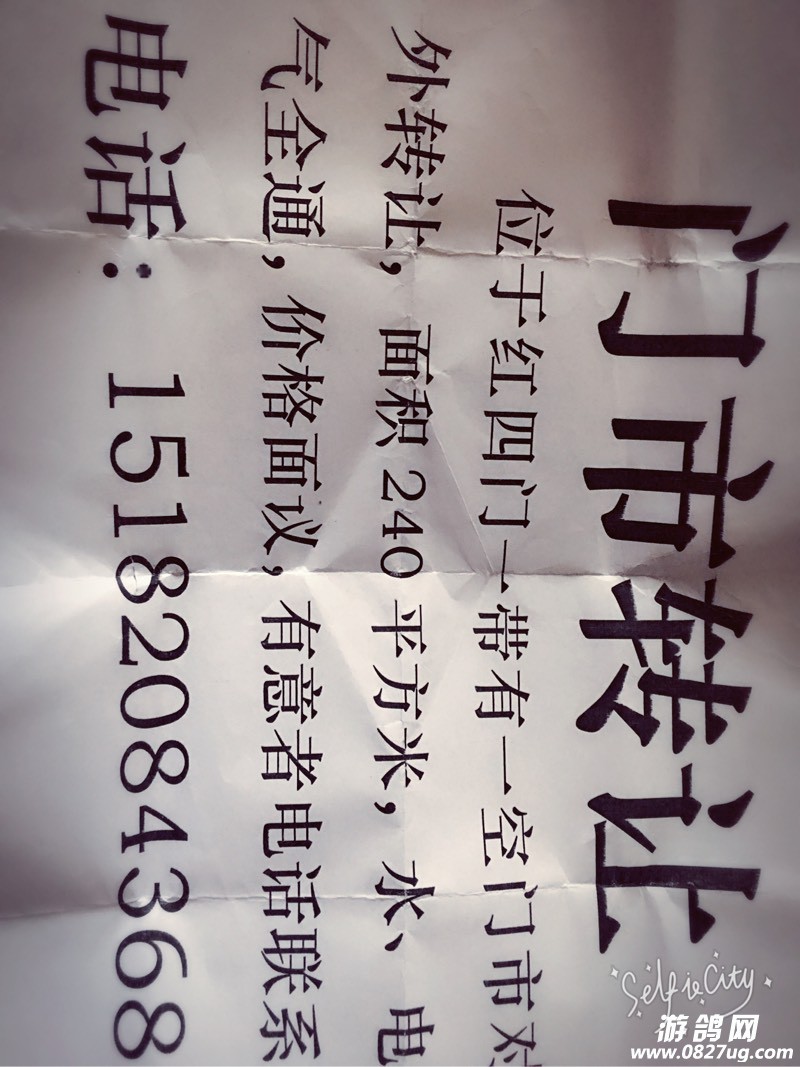 门市转让
位于红四门一带有一空门市对
外转让，面积240平方米，水、电
气全通，价格面议，有意者电话联系
电话：15182084368
Selfie City
游鸽网
www.0827ug.com